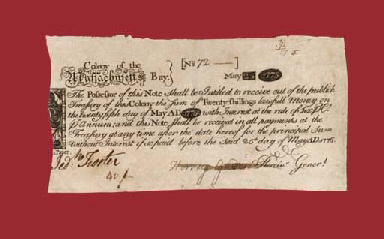 Colony of the
Massachusetts Bay. } [No 72 ——] May
The Possessor of this Note shall be Intitled to receive out of the publick
Treasury of this Colony the sum of Twenty Shillings lawfull Money on
the twenty fifth day of May A.D. with Interest at the rate of Six
Annum; and this Note shall be received in all payments at the
Treasury at any time after the date hereof for the principal Sum
without Interest if paid before the said 25th day of May
Foster
Henry Gardner Receivr Generl